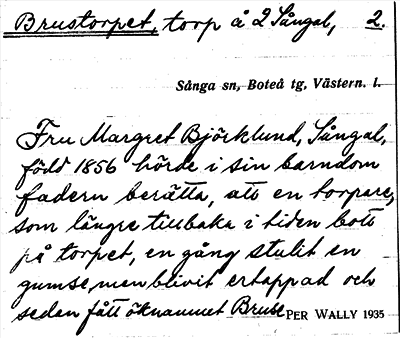 Brustorpet, torp å 2 Sångal, 2.
Sånga sn, Boteå tg, Västern. l.
Fru Margret Björklund, Sångal,
född 1856 hörde i sin barndom
fadern berätta, att en torpare,
som längre tillbaka i tiden bott
på torpet, en gång stulit en
gumse, men blivit ertappad och
sedan fått öknamnet Bruse
PER WALLY 1935